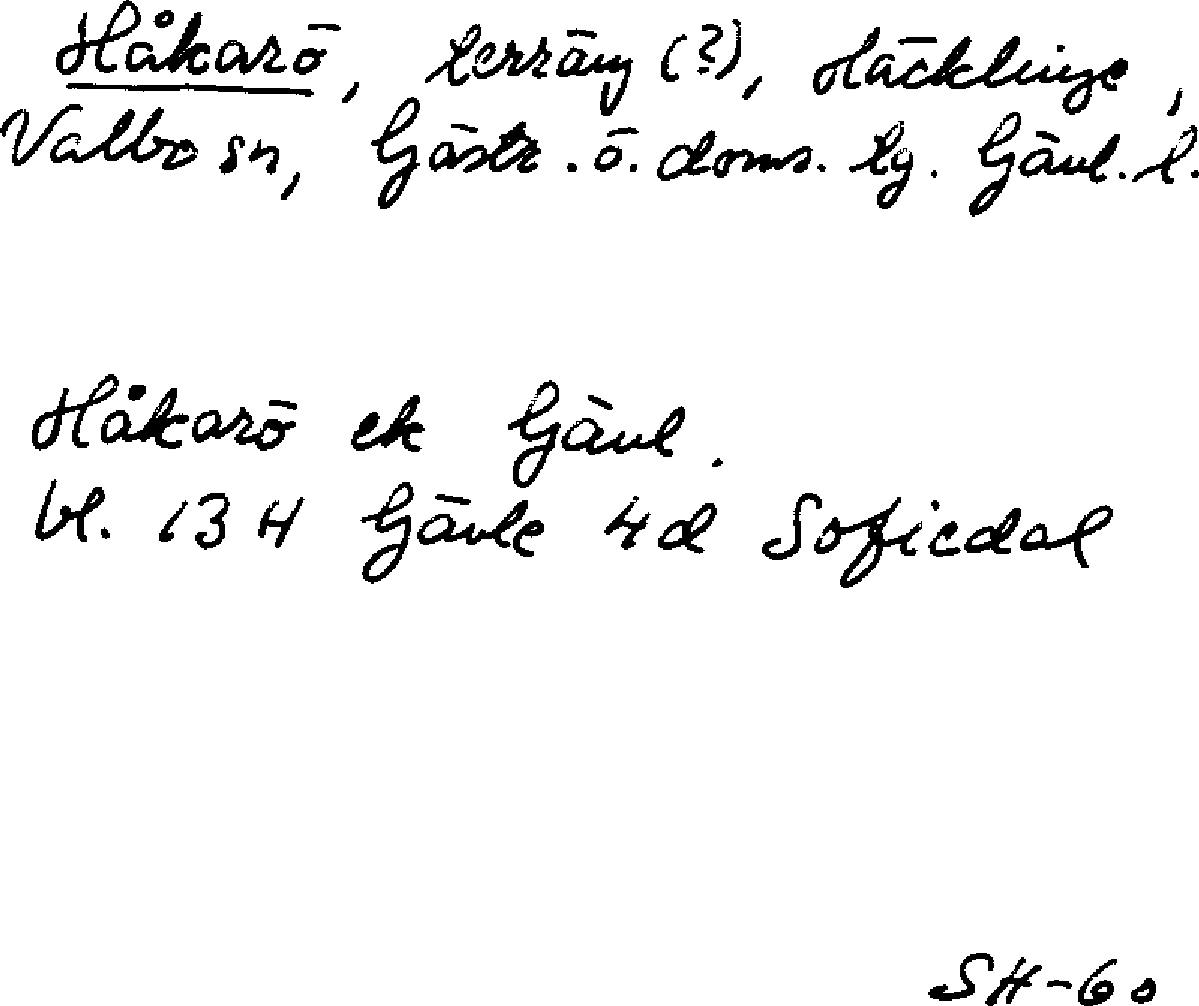 Håkarö, terräng (?), Häcklinge,
Valbo sn, Gästr. ö. doms. lg. Gävl. l.
Håkarö ek Gävl.
bl. 13 H Gävle 4d Sofiedal
SH-60